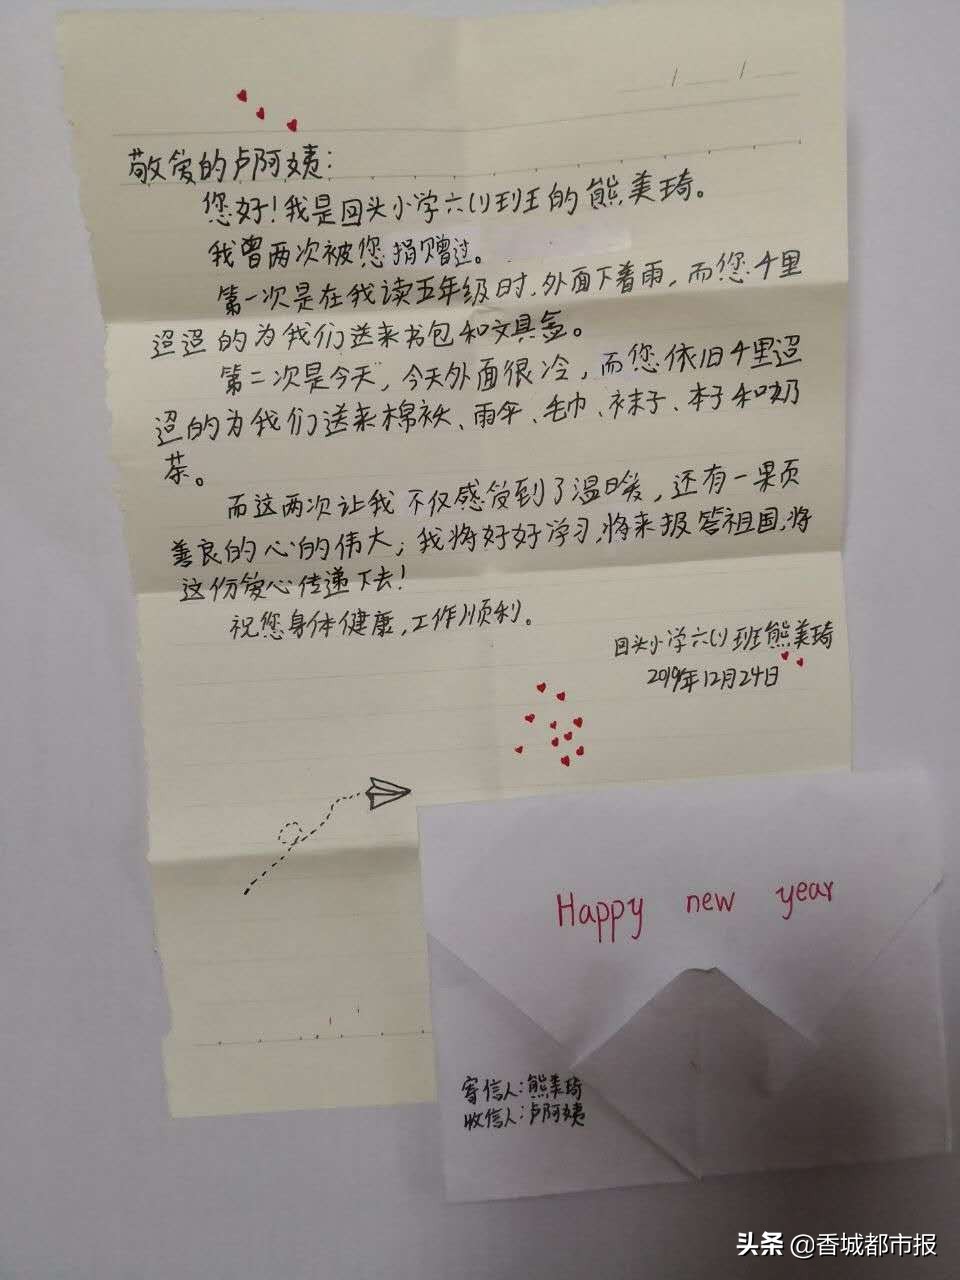 敬爱的卢阿姨：
您好！我是回头小学六(1)班的熊美琦。
我曾两次被您捐赠过。
第一次是在我读五年级时，外面下着雨，而您千里
迢迢的为我们送来书包和文具盒。
第二次是今天，今天外面很冷，而您依旧千里迢
迢的为我们送来棉袄、雨伞、毛巾、袜子、本子和奶
茶。
而这两次让我不仅感受到了温暖，还有一颗
善良的心的伟大；我将好好学习，将来报答祖国，将
这份爱心传递下去！
祝您身体健康，工作顺利。
回头小学六(1)班熊美琦
2019年12月24日
Happy new year
寄信人：熊美琦
收信人：卢阿姨
头条 @香城都市报